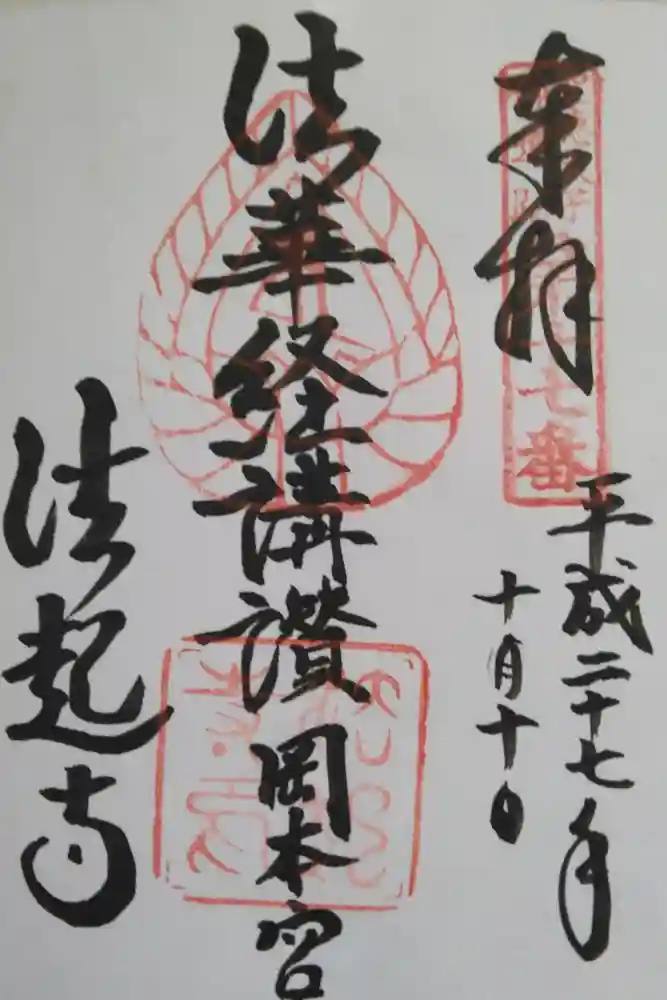 奉拝
平成二十七年
十月十日
法華経講讃岡本宮
法起寺
七番